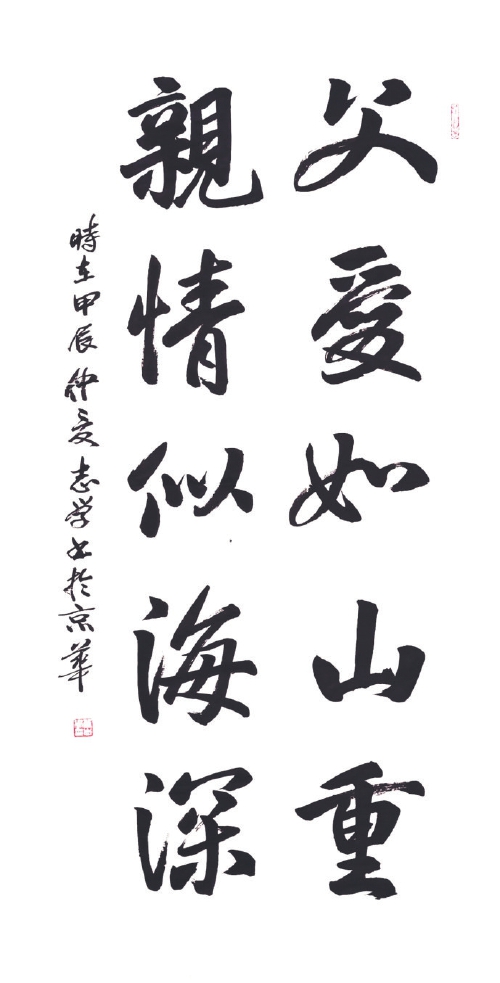 父愛如山重
親情似海深
時在甲辰仲夏志学书於京華